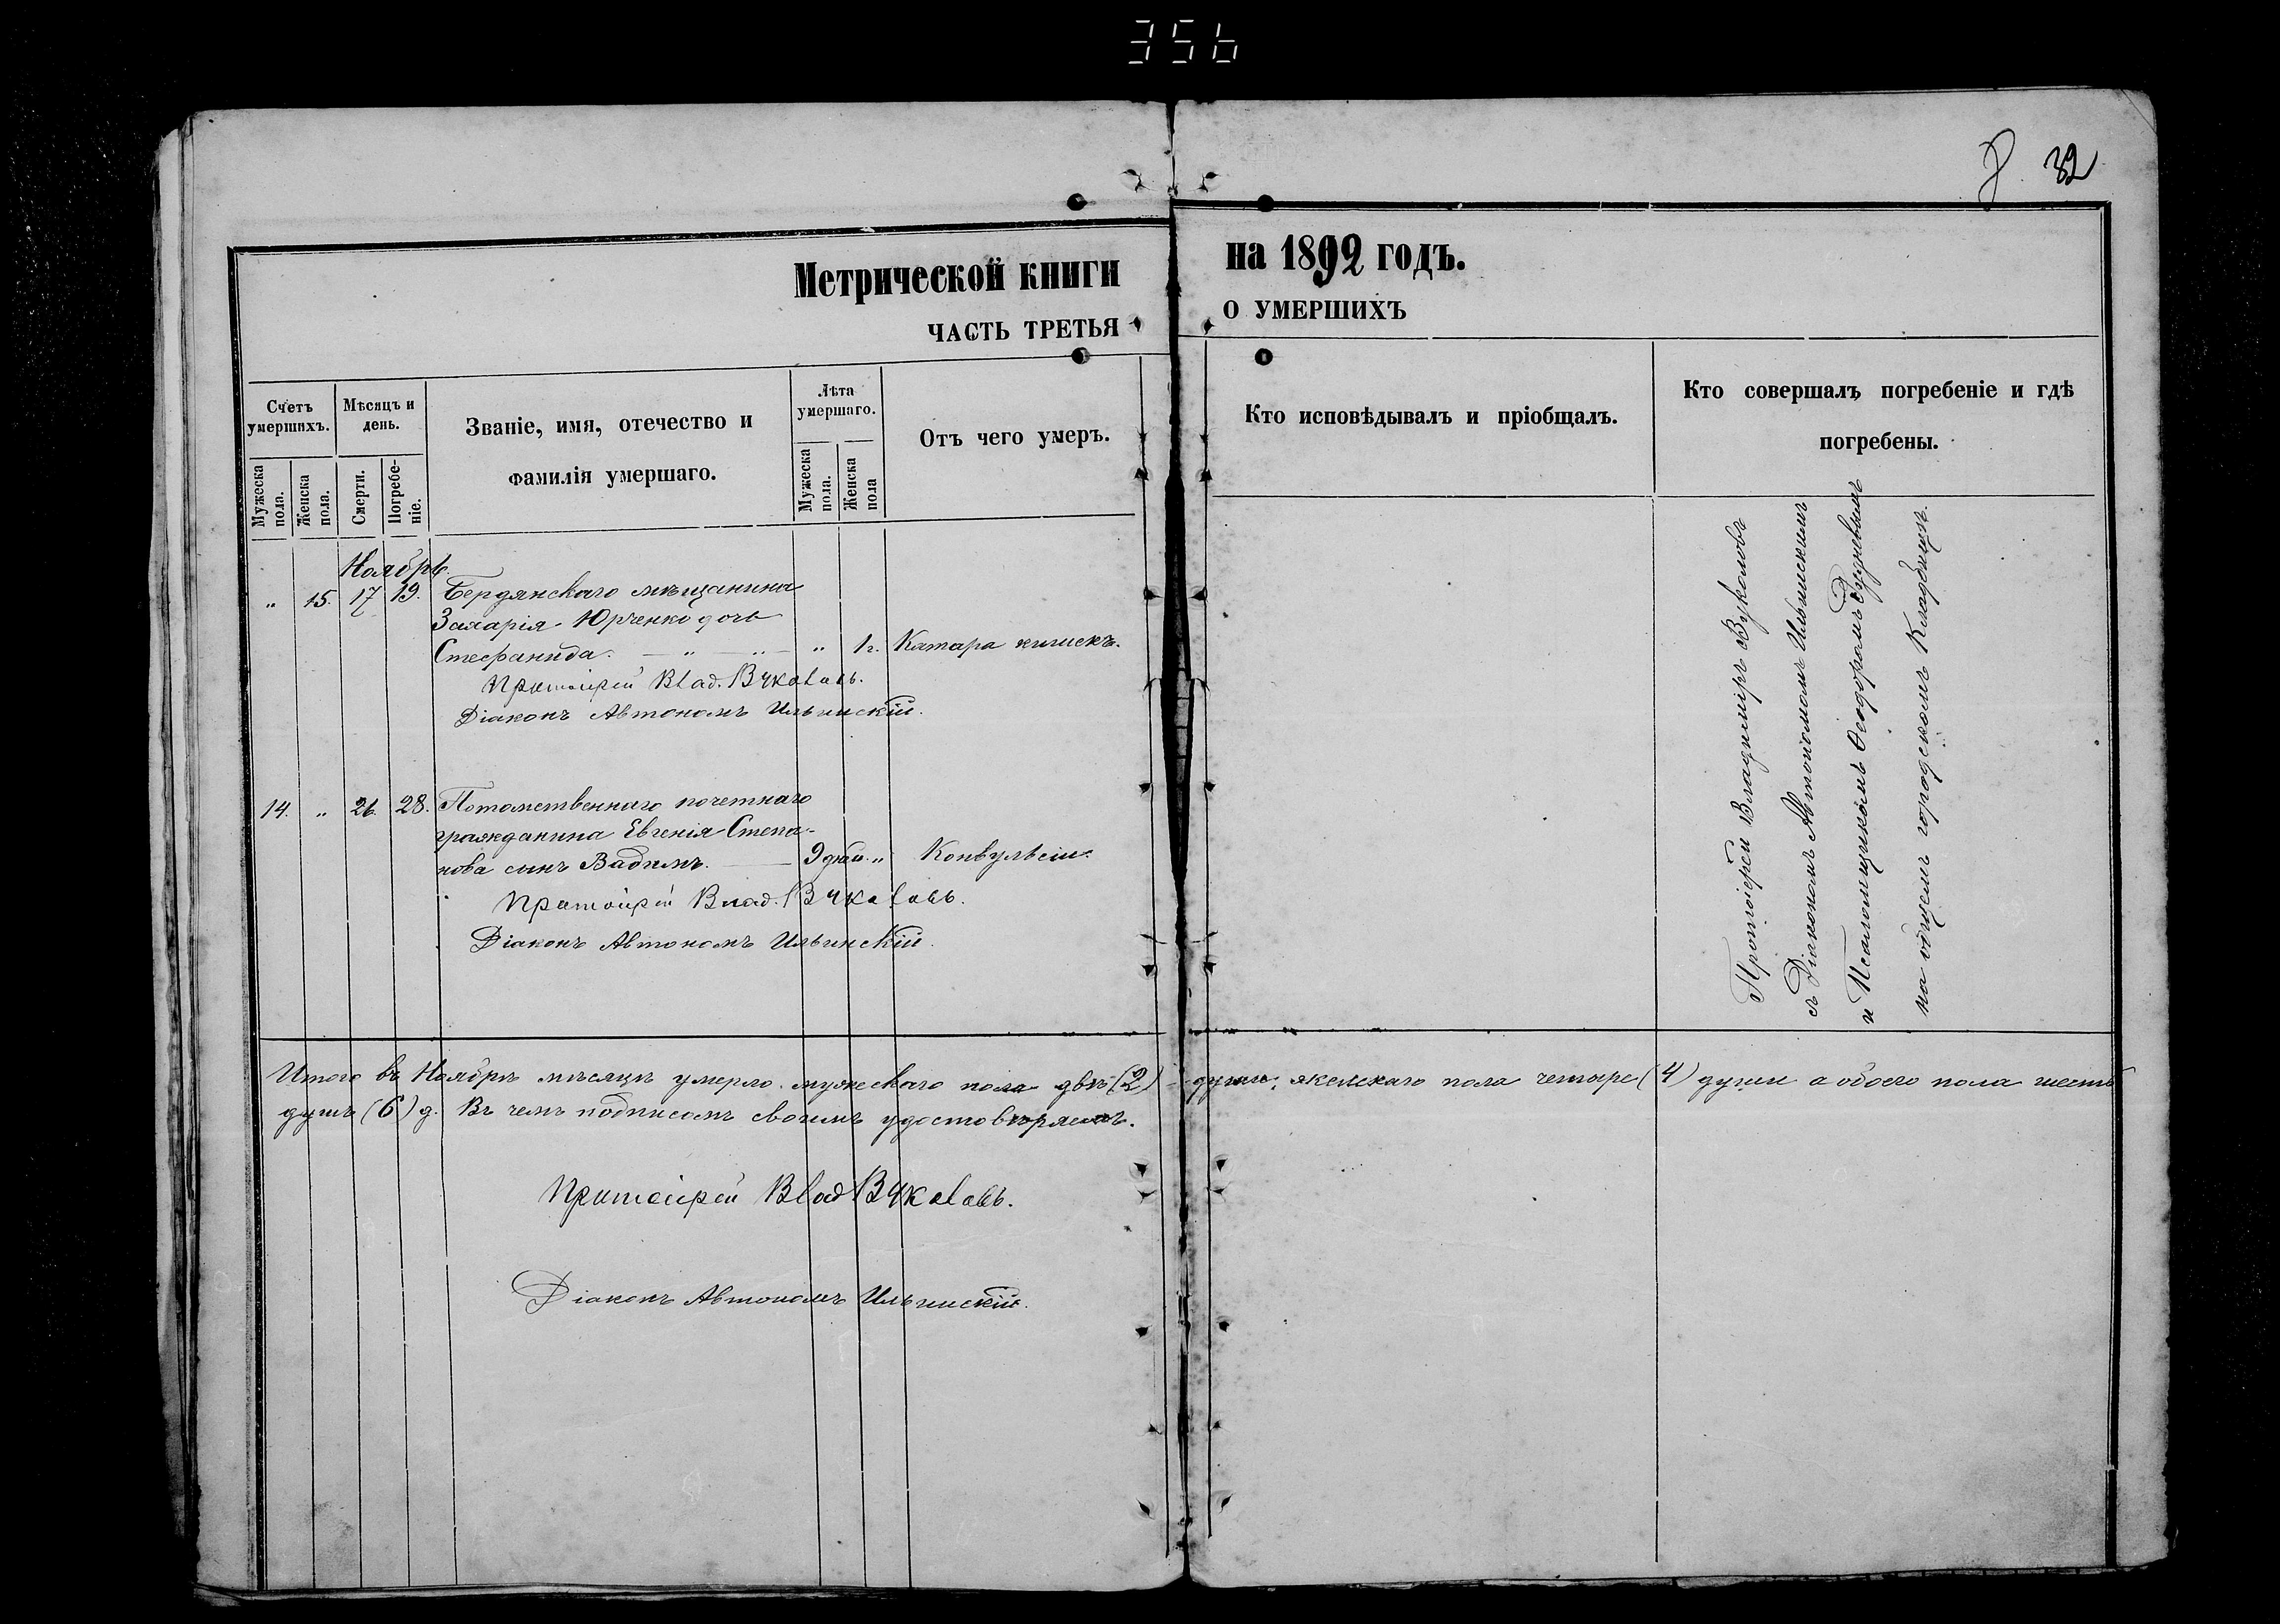 356
8. 32
Метрической книги на 1892 годъ.
ЧАСТЬ ТРЕТЬЯ О УМЕРШИХЪ
Счетъ умершихъ.
Мужеска пола.
Женска пола.
Мѣсяцъ и день.
Смерти.
Погребеніе.
Званіе, имя, отечество и
фамилія умершаго.
Лѣта умершаго.
Мужеска пола.
Женска пола
Отъ чего умеръ.
Кто исповѣдывалъ и пріобщалъ.
Кто совершалъ погребеніе и гдѣ
погребены.
Ноябрь.
„ 15. 17 19. Бердянскаго мѣщанина
Захарія Юрченко дочь
Стефанида. — „ — „ — „ 1 г. Катара кишекъ.
Протоіерей Влад. Вуколовъ.
Діаконъ Автономъ Ильинскій.
14. „ 26. 28. Потомственнаго почетнаго
гражданина Евгенія Степа-
нова сынъ Вадимъ. — 9 дней. „ Конвульсіи.
Протоіерей Влад. Вуколовъ.
Діаконъ Автономъ Ильинскій.
Протоіерей Владиміръ Вуколовъ
съ Діакономъ Автономомъ Ильинскимъ
и Псаломщикомъ Ѳеодоромъ
на общемъ городскомъ кладбищѣ.
Итого въ Ноябрѣ мѣсяцѣ умерло мужескаго пола двѣ (2) души, женскаго пола четыре (4) души а обоего пола шесть
душъ (6) д. Въ чемъ подписомъ своимъ удостовѣряемъ.
Протоіерей Влад Вуколовъ.
Діаконъ Автономъ Ильинскій.